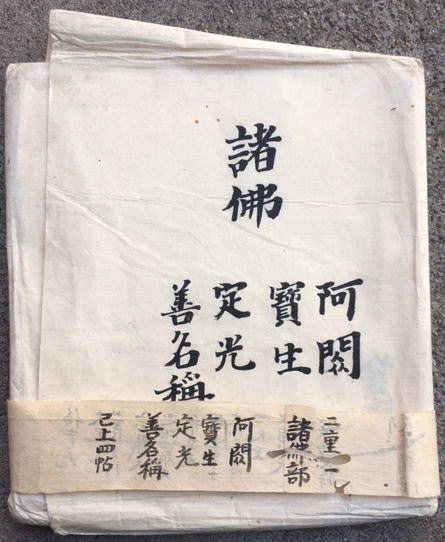 諸佛
阿閦
寶生
定光
善名稱
重 一
諸佛部
阿閦
寶生
定光
善名稱
已上四帖